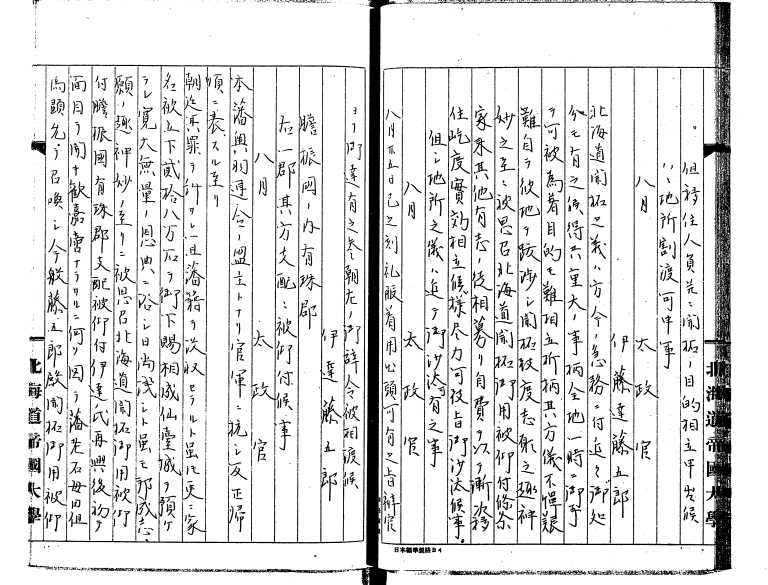 但移住人員并ニ開拓ノ目的相立申出候
ハヽ地所割渡可申事
八月　太政官
伊達藤五郎
北海道開拓之義ハ方今ノ急務ニ付近々御処
分モ有之候得共重大ノ事柄全地一時ニ御手
ヲ可被為着目的モ難相立折柄其方儀不憚艱
難自ラ彼地ヲ跋渉シ開拓致度志願之趣神
妙之至ニ被思召北海道開拓御用被仰付候条
家来其他有志ノ徒相募リ自費ヲ以テ漸次移
住屹度實効相立候様尽力可致旨御沙汰候事
但シ地所之儀ハ近々御沙汰可有之事
八月　太政官
八月廿五日巳之刻礼服着用出頭可有之旨辨官
ヨリ御達有之参朝左ノ御辞令被相渡候
伊達藤五郎
膽振國ノ内有珠郡
右一郡其方支配ニ被仰付候事
八月　太政官
本藩奥羽連合ノ盟主トナリ官軍ニ抗シ反正帰
順ニ表スル至リ
朝廷其罪ヲ許サレ且藩籍ヲ没収セラルト雖モ更ニ家
名被立下貳拾八万石ヲ御下賜相成仙臺城ヲ預ケ
ラレ寛大無量ノ恩典ニ浴シ日尚浅シト雖モ邦成志
願ノ趣神妙ノ至リニ被思召北海道開拓御用被仰
付膽振國有珠郡支配被仰付伊達氏再興後初テ
面目ヲ開キ歓嘉啻ナラサルニ何ソ図ラン藩老石母田但
馬顕允ヲ召喚シ今般藤五郎殿開拓御用被仰
北海道帝國大學
北海道帝國大學
日本標準規格B4